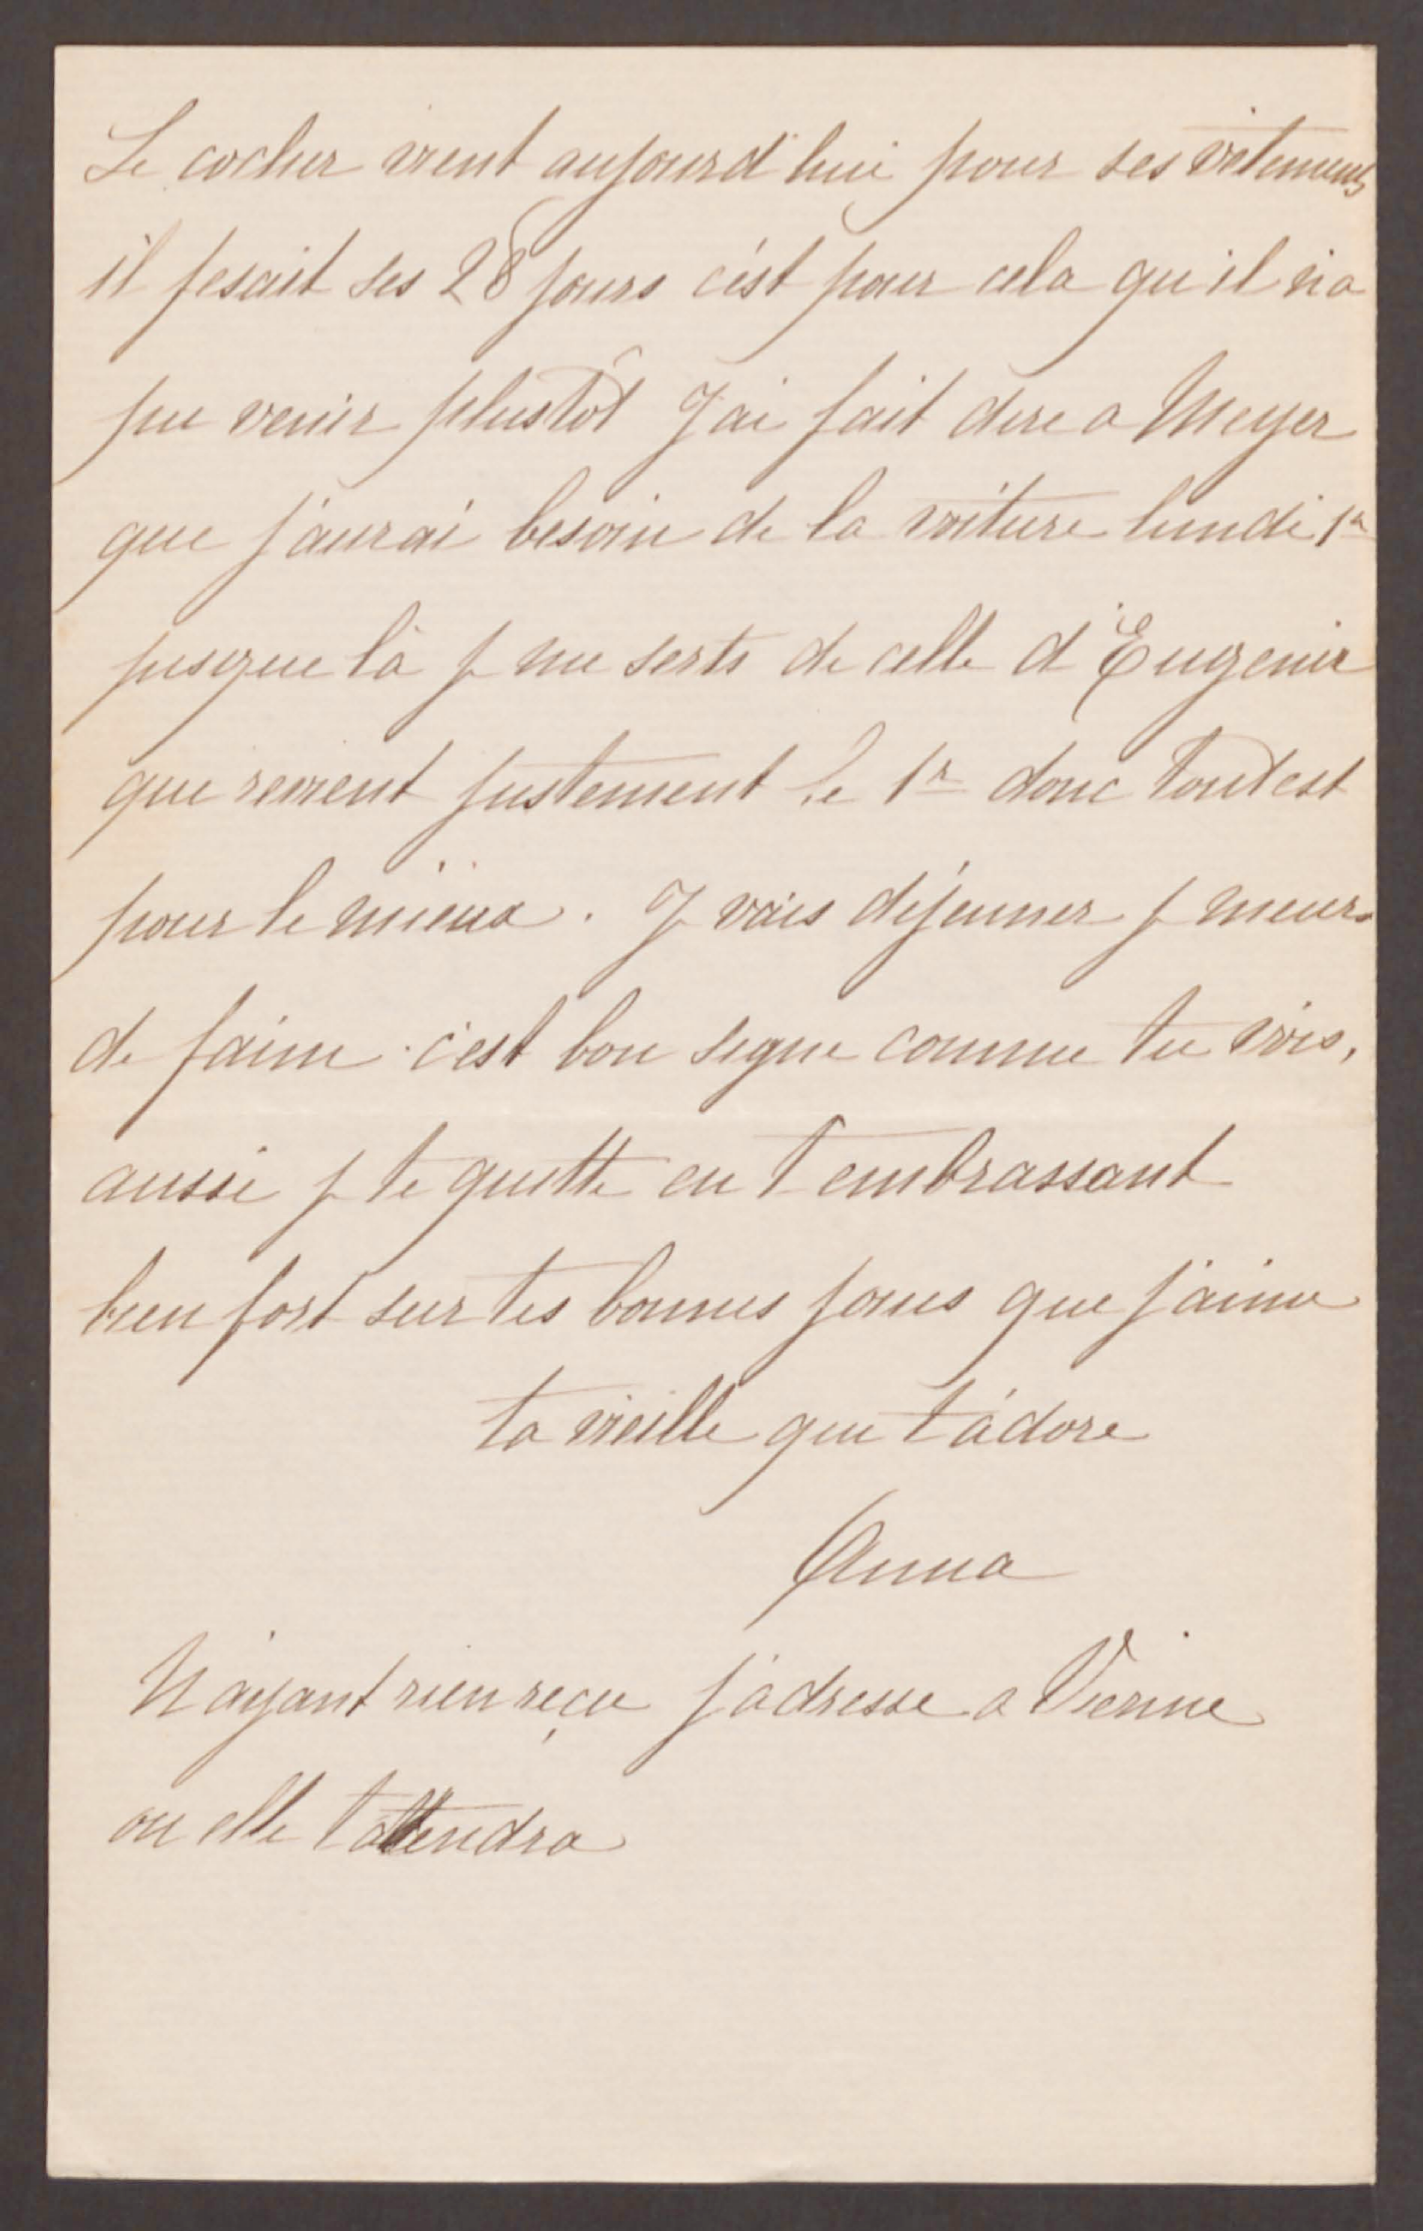 Le cocher vient aujourd'hui pour ses vêtements
il fesait ses 28 jours c'est pour cela qu'il n'a
pu venir plustôt J'ai fait dire a Meyer
que j'aurai besoin de la voiture lundi 1r
jusque là je me serts de celle d'Eugenie
qui revient justement le 1r donc tout est
pour le mieux. Je vais déjeuner je meurs
de faim. c'est bon signe comme tu vois,
aussi je te quitte en t'embrassant
bien fort sur tes bonnes joues que j'aime
ta vieille qui t'adore
Anna
N'ayant rien reçu j'adresse a Vienne
ou elle t'attendra